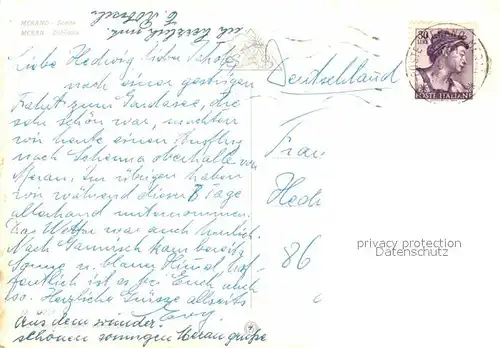 MERANO - Scena
MERAN - Schenna
Liebe Hedwig, Liebe
nach einer gestrigen
Fahrt zum Gardasee, die
sehr schön war, machten
wir heute einen Ausflug
nach Schenna oberhalb von
Meran. Im übrigen haben
wir während dieser 8 Tage
allerhand mitgenommen.
Das Wetter war auch herrlich.
Nach Garmisch kam bereits
Sonne u. blauer Himmel, hof-
fentlich ist es bei Euch auch
so. Herzliche Grüsse allseits
Evy.
Aus dem wunder-
schönen sonnigen Meran grüße
ich herzlich
E.
Deutschland
Frau
Hed
86
80
LIRE
POSTE ITALIANE
privacy protection
Datenschutz